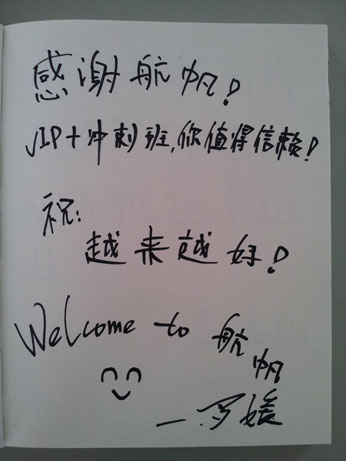 感谢航帆!
VIP+冲刺班,你值得信赖!
祝:
越来越好!
Welcome to 航帆
—罗媛